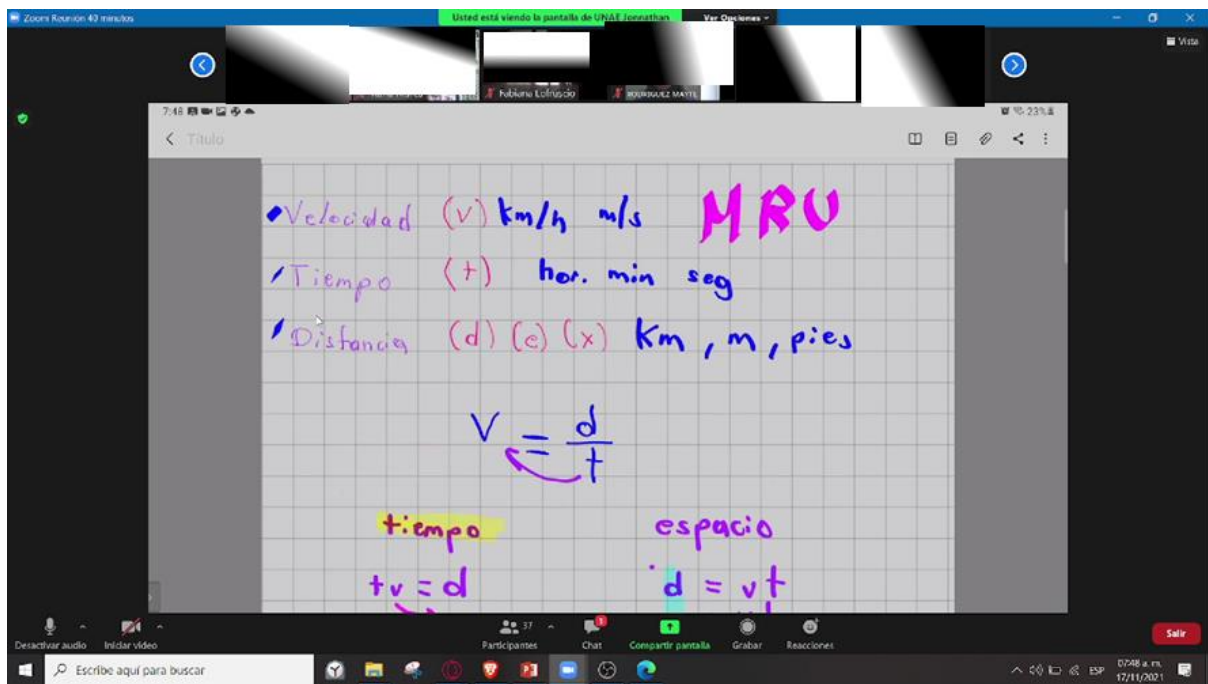 Zoom Reunión 40 minutos
Usted está viendo la pantalla de UNAE Jonnathan
Ver Opciones
Vista
Fabiana Lofruscio
RODRIGUEZ MAYTE
7:48
23%
Título
Velocidad (v) km/h m/s MRU
Tiempo (t) hor. min seg
Distancia (d) (e) (x) Km, m, pies
V = d
t
tiempo espacio
tv = d d = vt
37 1
Desactivar audio Iniciar video Participantes Chat Compartir pantalla Grabar Reacciones Salir
Escribe aquí para buscar
ESP 07:48 a. m.
17/11/2021